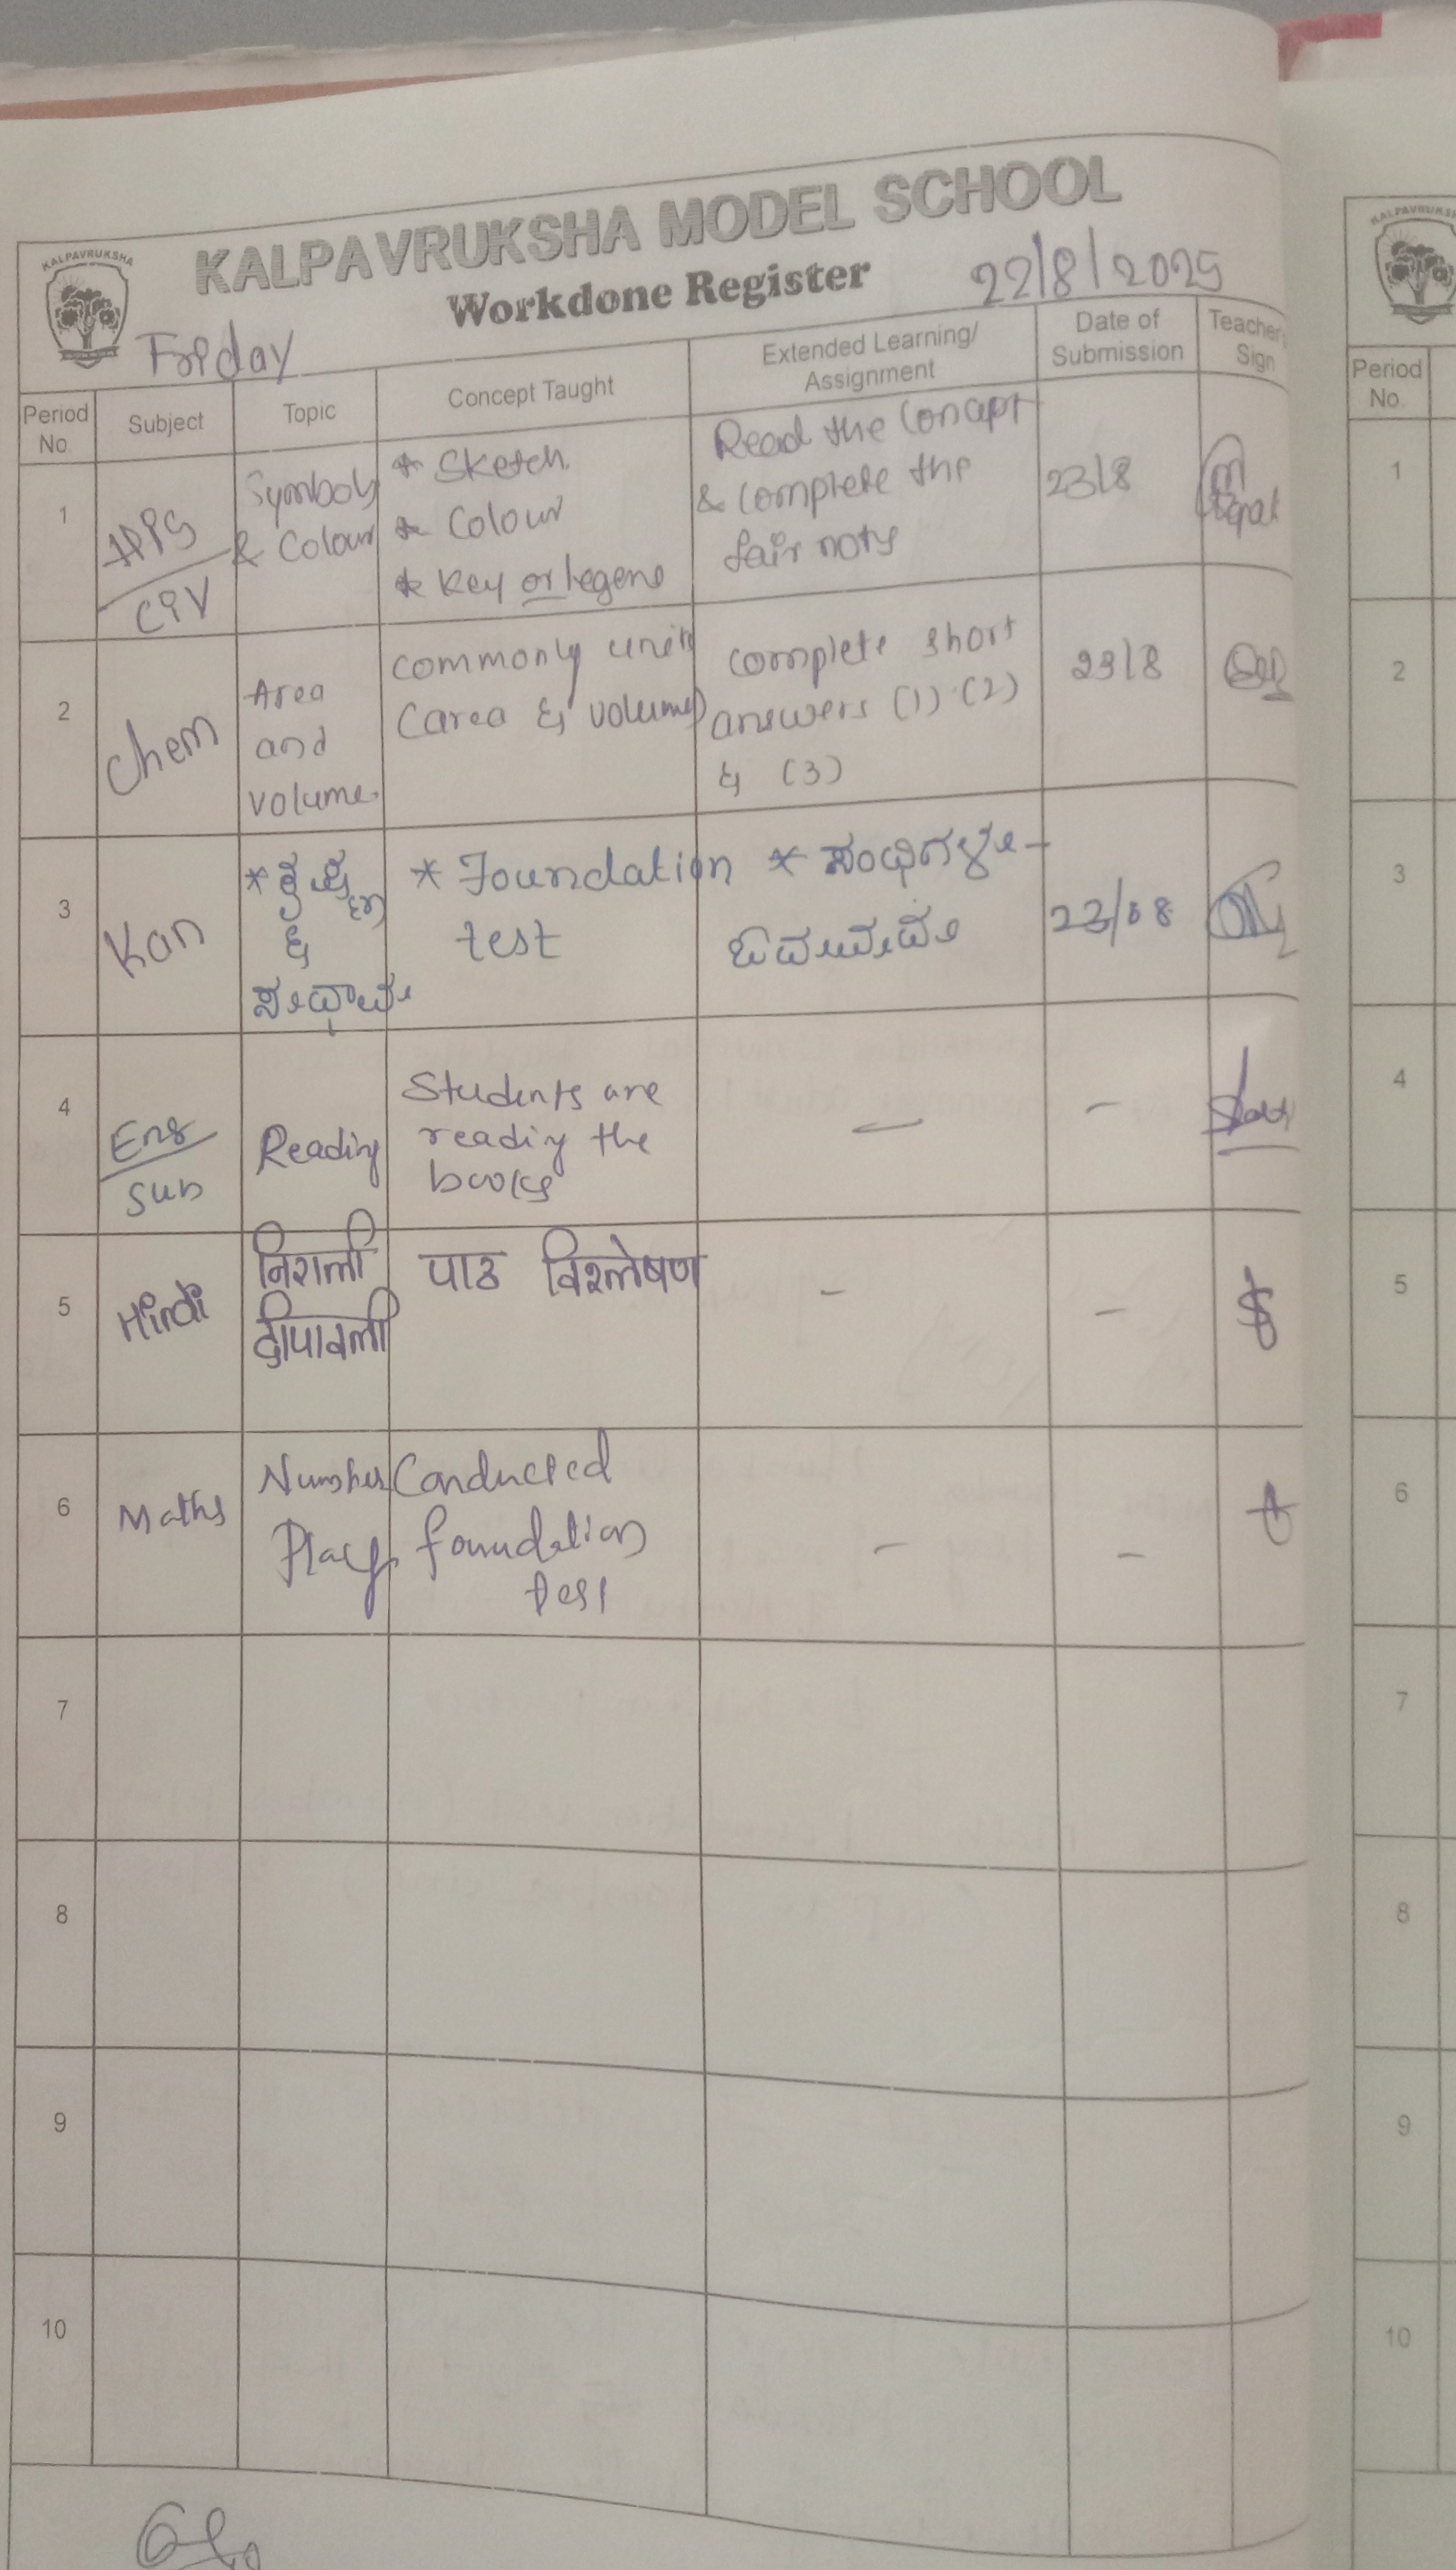 KALPAVRUKSHA
KALPAVRUKSHA MODEL SCHOOL
Workdone Register
22/8/2025
Friday
Period No.
Subject
Topic
Concept Taught
Extended Learning/ Assignment
Date of Submission
Teacher Sign
1
His
CIV
Symbols
& Colour
* Sketch
* Colour
* Key or legend
Read the Concept
& complete the
fair nots
23/8
2
Chem
Area
and
volume.
commonly units
(area & volume)
complete short
answers (1) (2)
& (3)
23/8
3
Kan
&
* Foundation
test
* ಸಂಧಿಗಳ
23/08
4
Eng
Sub
Reading
Students are
readiy the
books
—
—
5
Hindi
निराली
दीपावली
पाठ विश्लेषण
–
–
6
Maths
Number
Play
Conducted
foundation
test
–
–
7
8
9
10
KALPAVRUKSH
Period No.
1
2
3
4
5
6
7
8
9
10